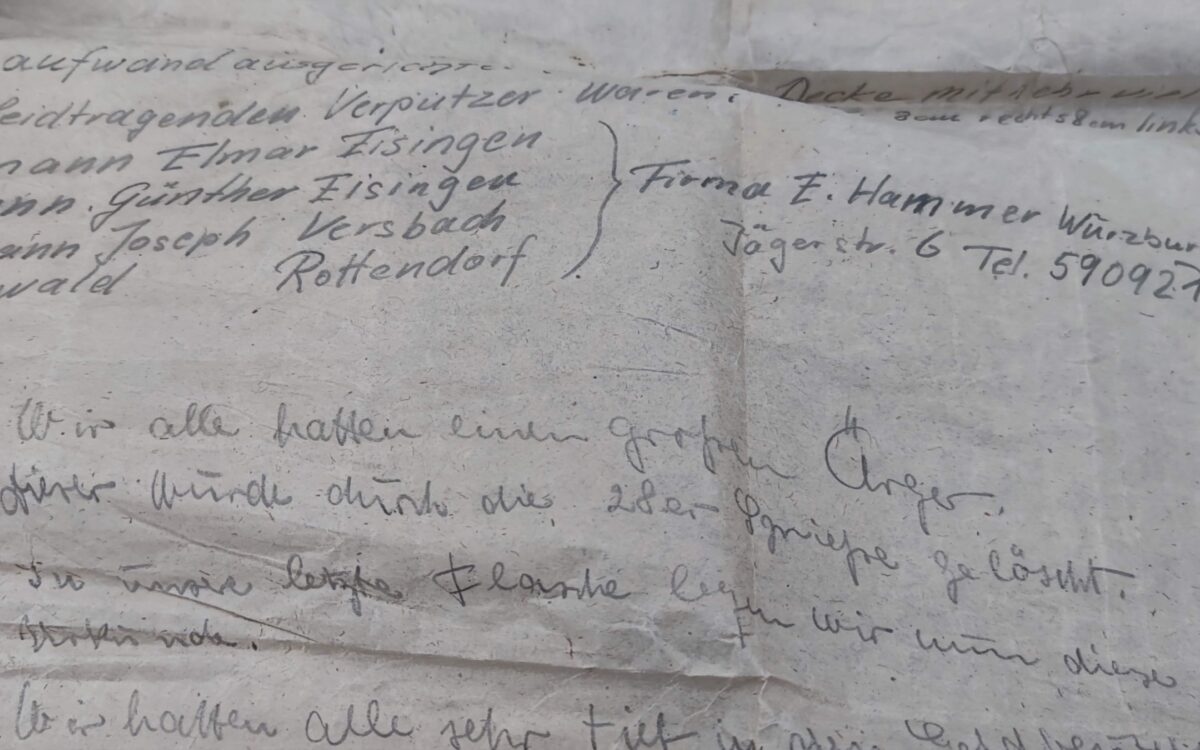 aufwand
leidtragenden Verputzer waren: Decke mit sehr
8cm rechts 8cm link
mann Elmar Eisingen
nn. Günther Eisingen
ann Joseph Versbach
wald Rottendorf
Firma E. Hammer Würzbur
Jägerstr. 6 Tel. 590921
Wir alle hatten einen großen Ärger.
Dieser wurde durch die 28er gelöscht.
In unsre letzte Flasche legen wir nun diese
Urkunde.
Wir hatten alle sehr tief in die